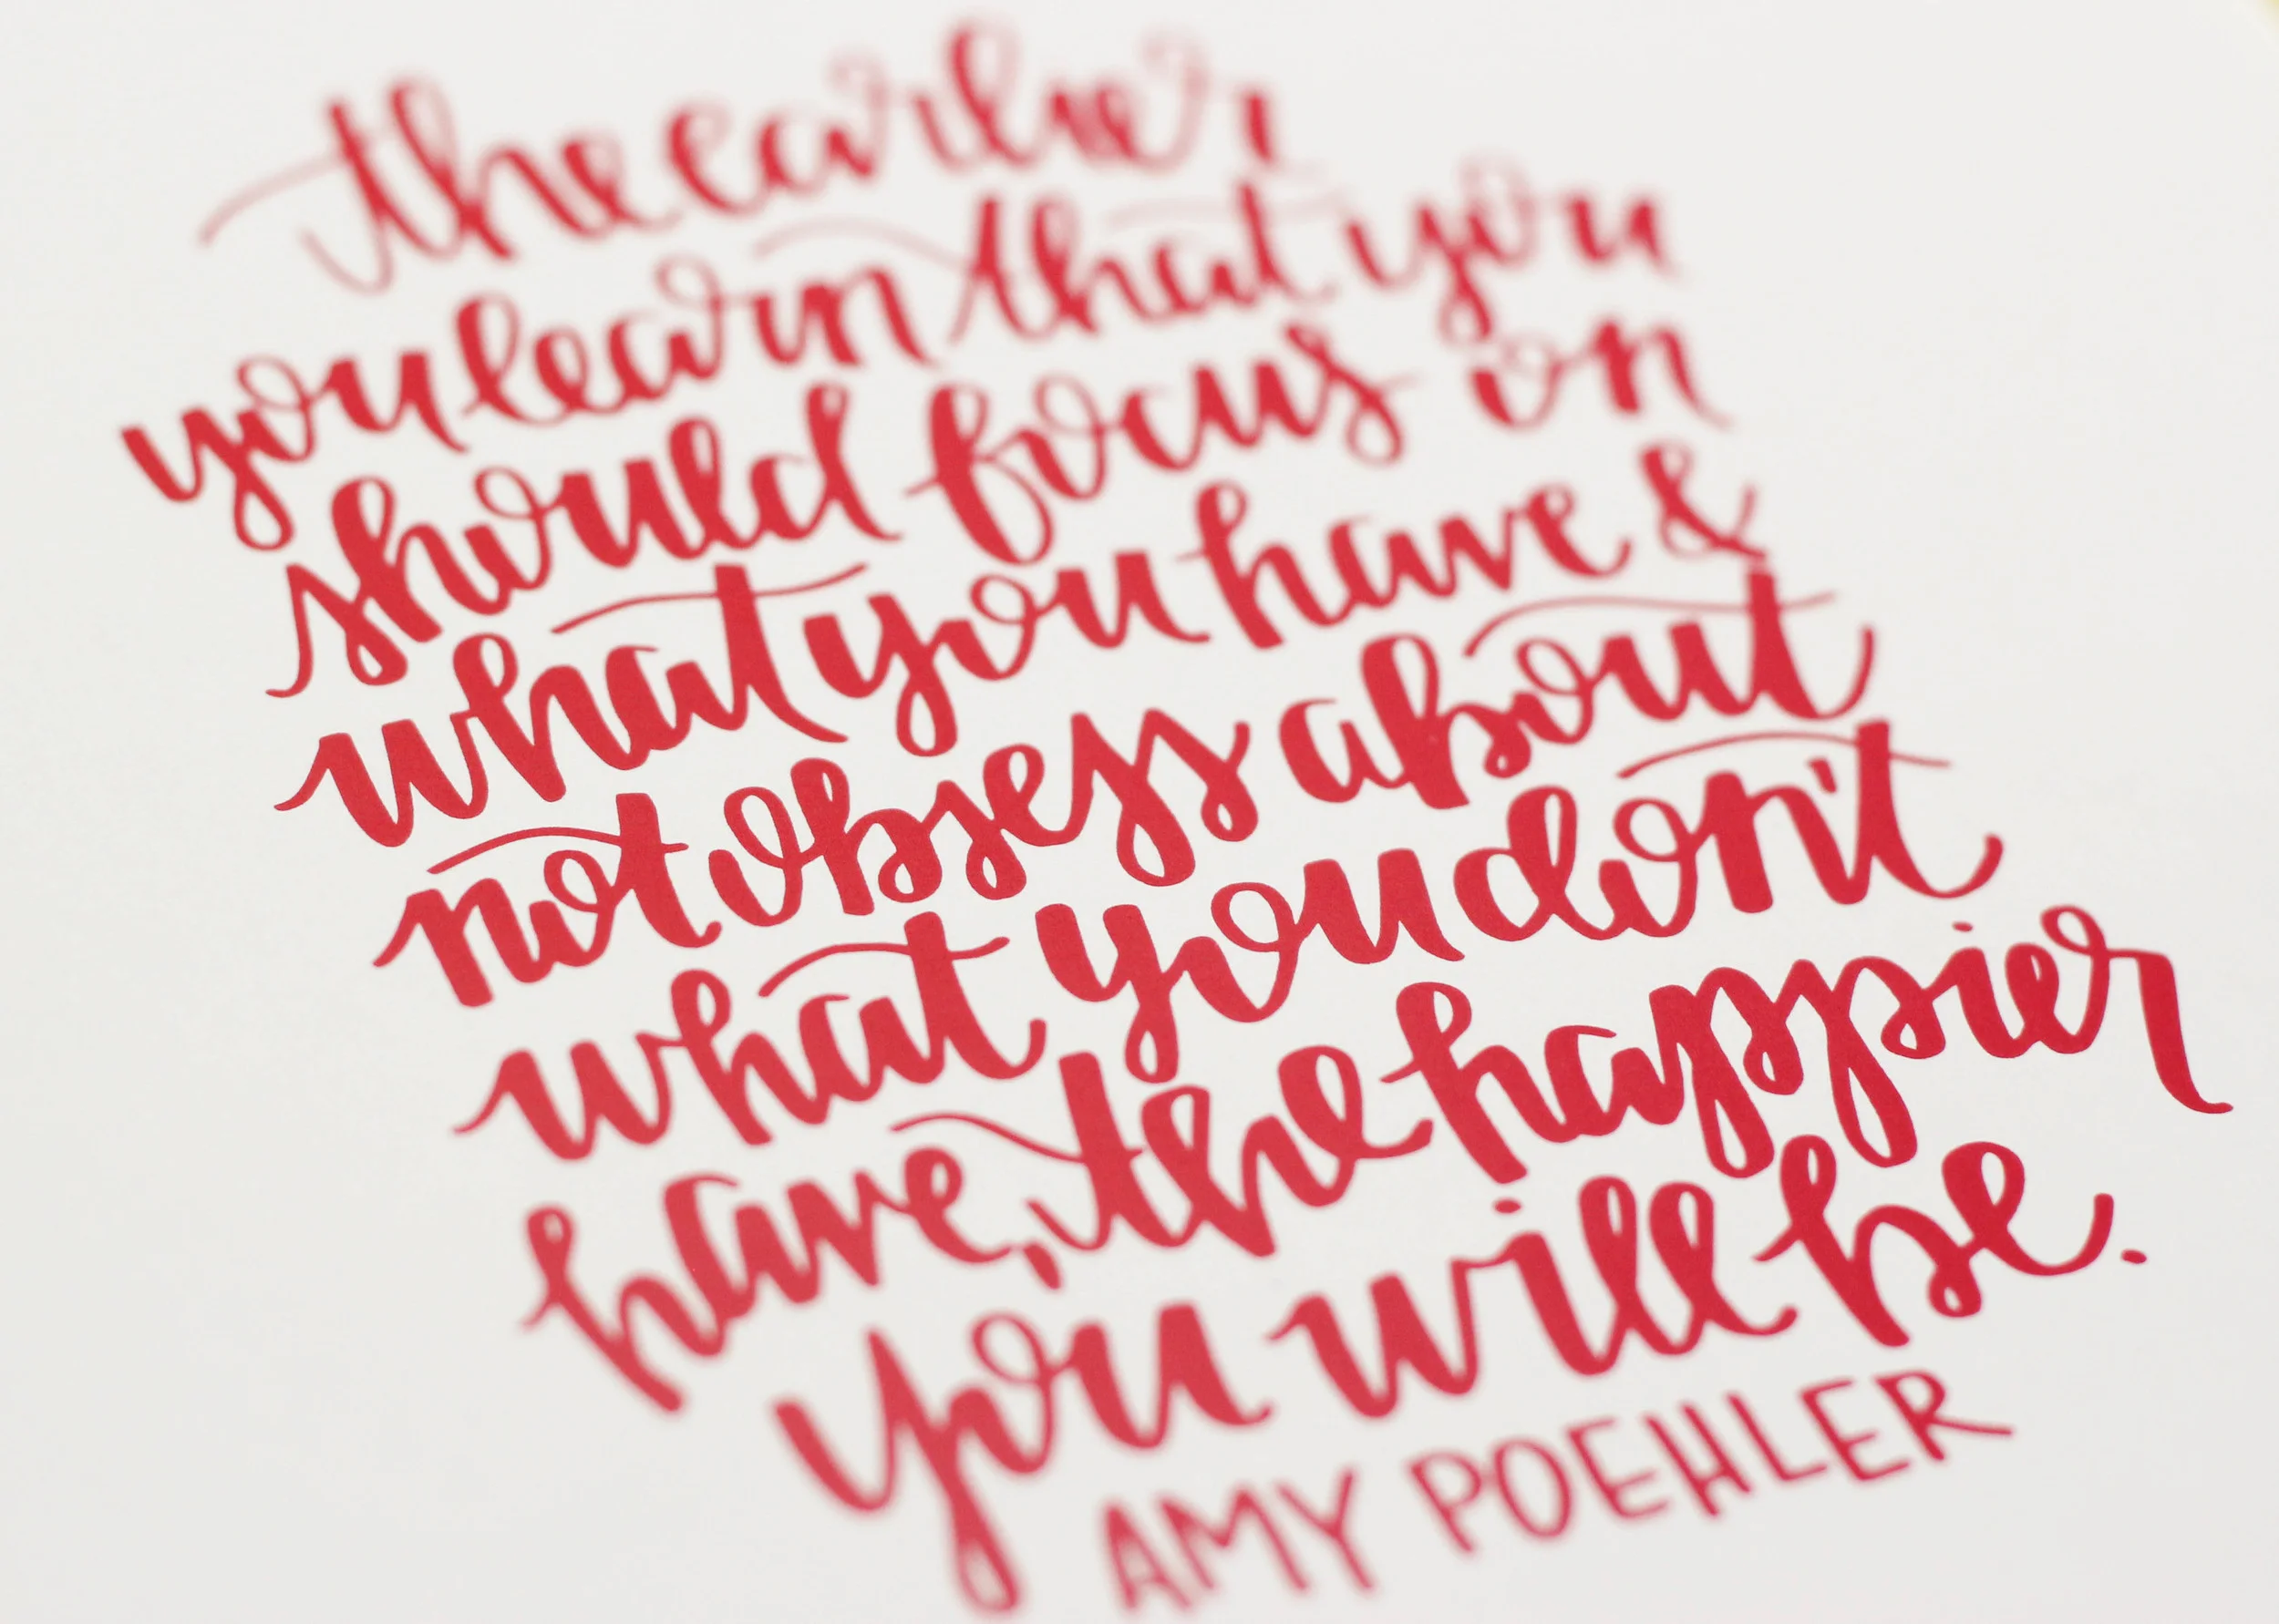 the earlier
you learn that you
should focus on
what you have &
not obsess about
what you don't
have, the happier
you will be.
AMY POEHLER